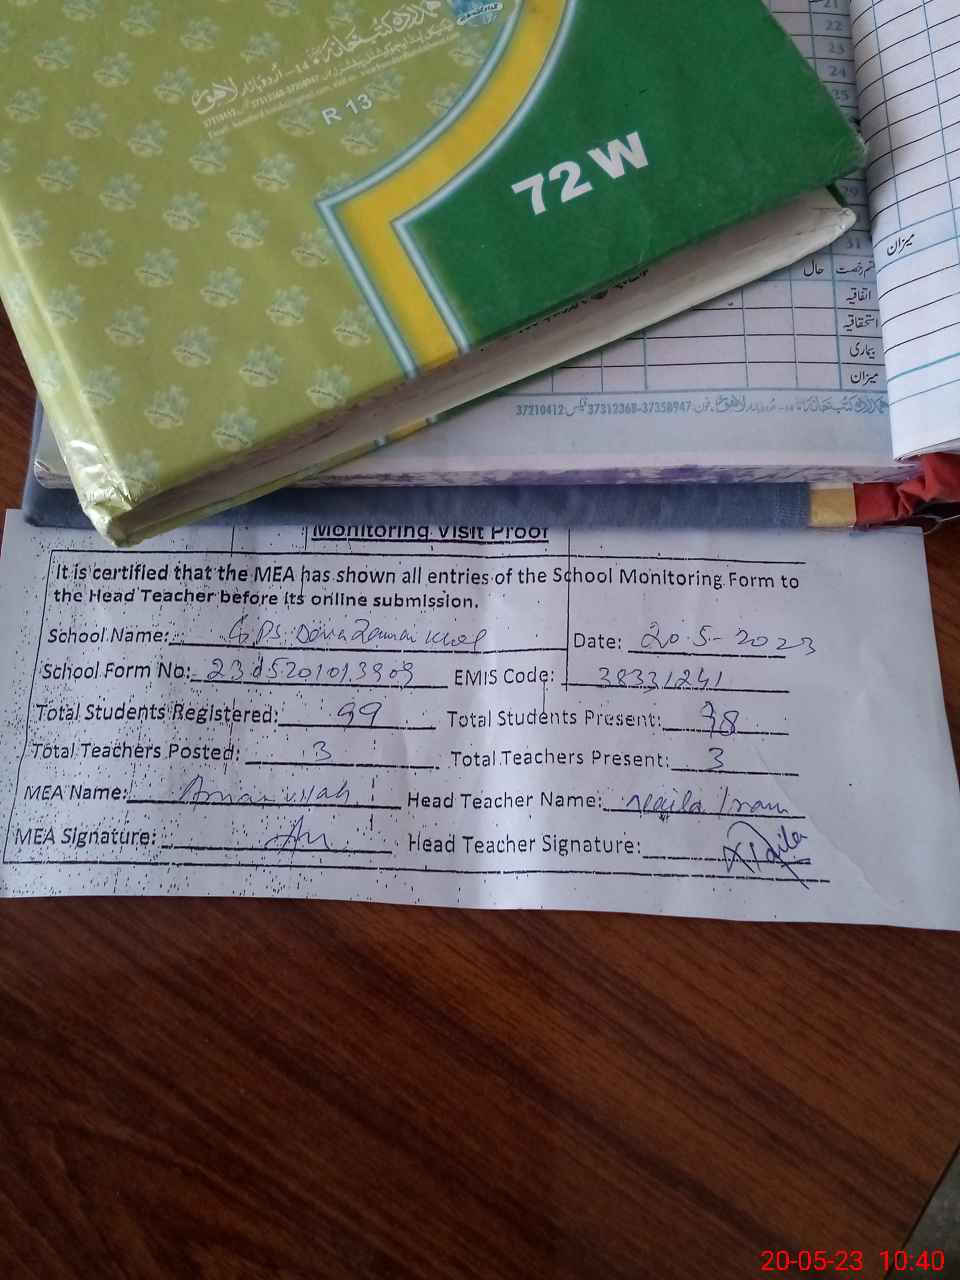 14-اردو بازار لاہور
R 13
72 W
21
22
23
24
25
29
31
میزان
حال
اتفاقیہ
استحقاقیہ
بیماری
میزان
37210412 فیکس 37312368-37358947
Monitoring Visit Proof
It is certified that the MEA has shown all entries of the School Monitoring Form to
the Head Teacher before its online submission.
School Name: GPS Date: 20-5-2023
School Form No: EMIS Code: 38331241
Total Students Registered: 99 Total Students Present: 98
Total Teachers Posted: 3 Total Teachers Present: 3
MEA Name: Aman ullah Head Teacher Name: Naila Iram
MEA Signature: Head Teacher Signature: Naila
20-05-23 10:40